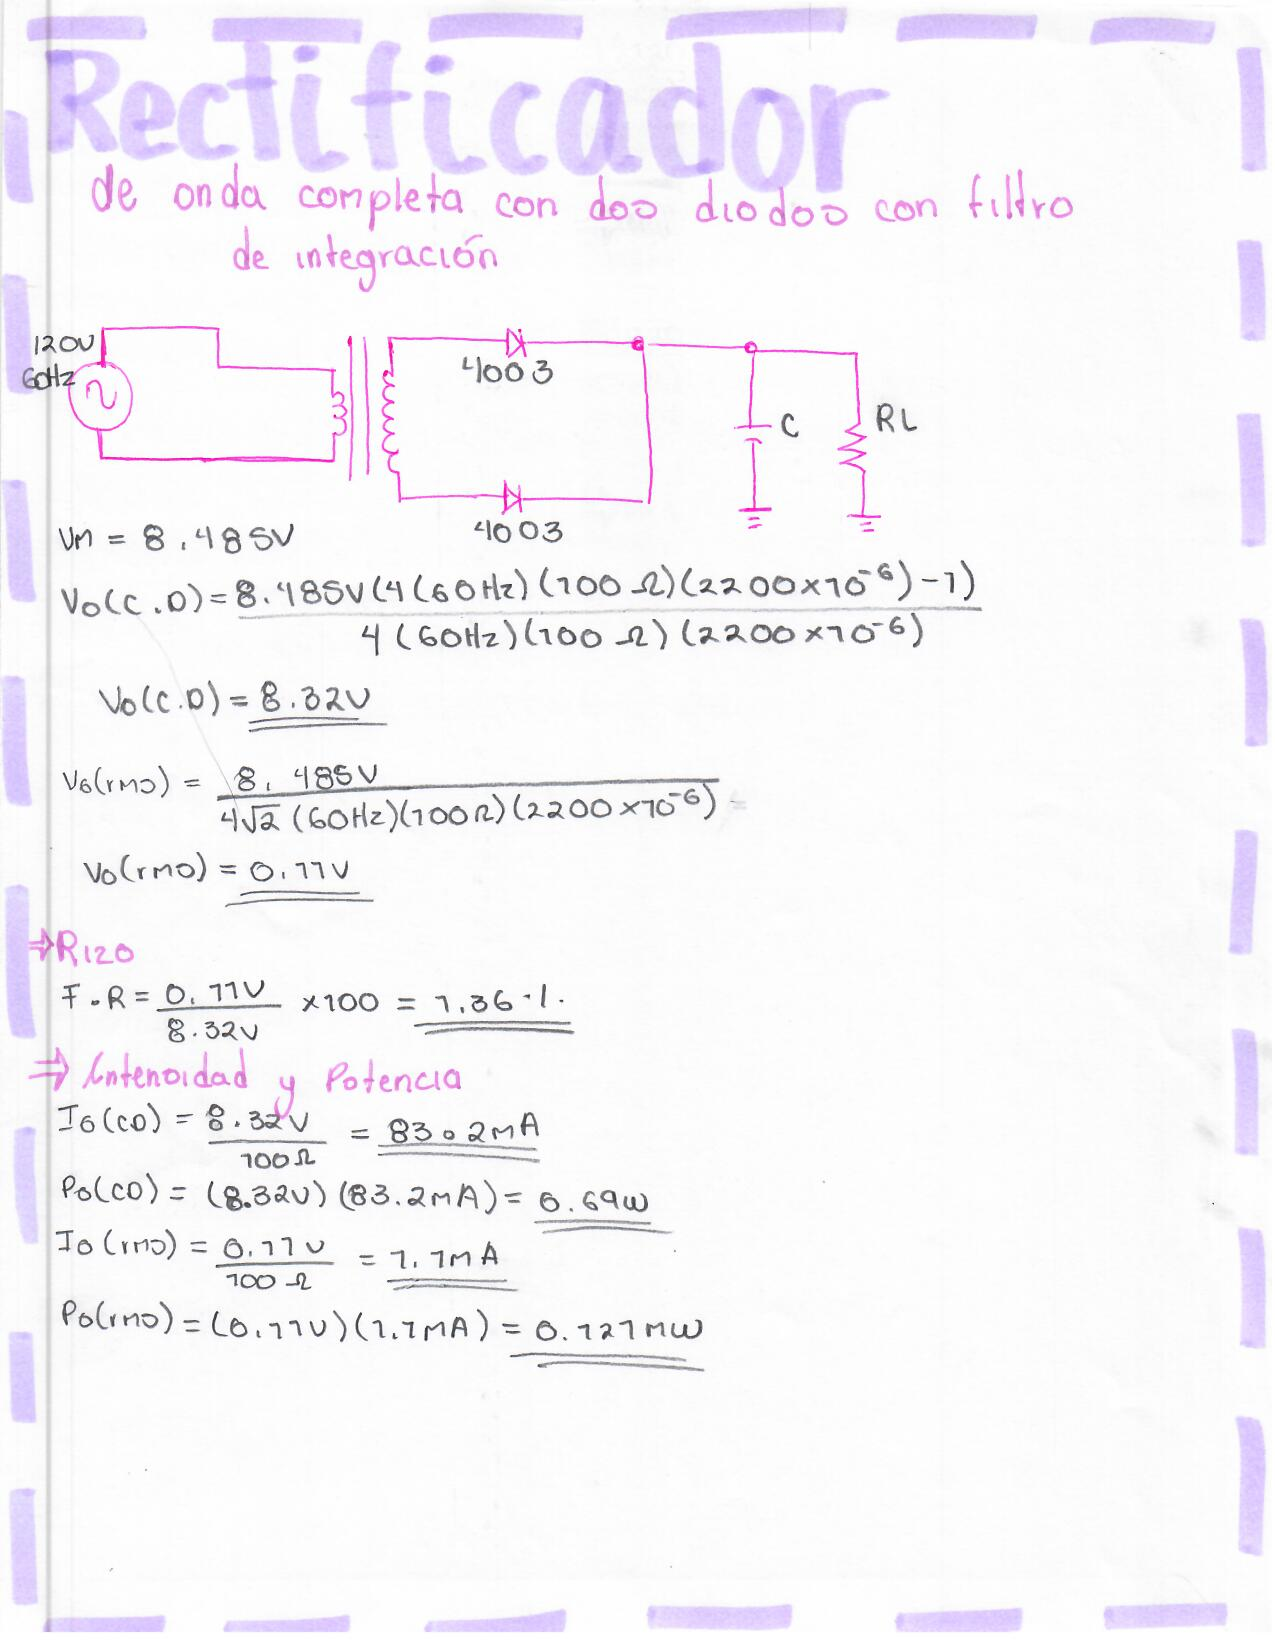 Rectificador
de onda completa con dos diodos con filtro
de integración
120V
60Hz
4003
C
RL
4003
Vm = 8.485V
Vo(C.D) = 8.485V(4(60Hz)(100 Ω)(2200x10^-6)-1)
4(60Hz)(100 Ω)(2200x10^-6)
Vo(C.D) = 8.32V
Vo(rms) = 8.485V
4√2 (60Hz)(100Ω)(2200x10^-6)
Vo(rms) = 0.11V
⇒Rizo
F.R = 0.11V x100 = 1.36 %
8.32V
⇒ Intensidad y Potencia
Io(CD) = 8.32V = 83.2mA
100Ω
Po(CD) = (8.32V)(83.2mA) = 0.69W
Io(rms) = 0.11V = 1.1mA
100Ω
Po(rms) = (0.11V)(1.1mA) = 0.121mW